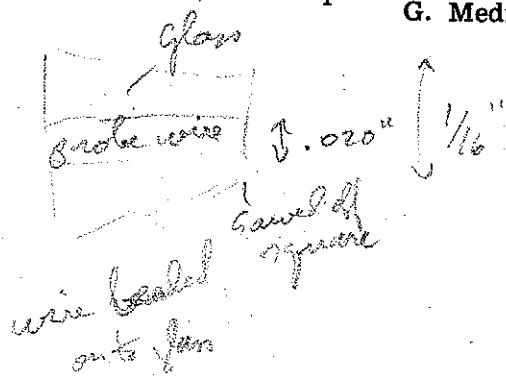 G. Medi
glass
probe wire
.020"
1/16"
sawed off
square
wire beaded
onto